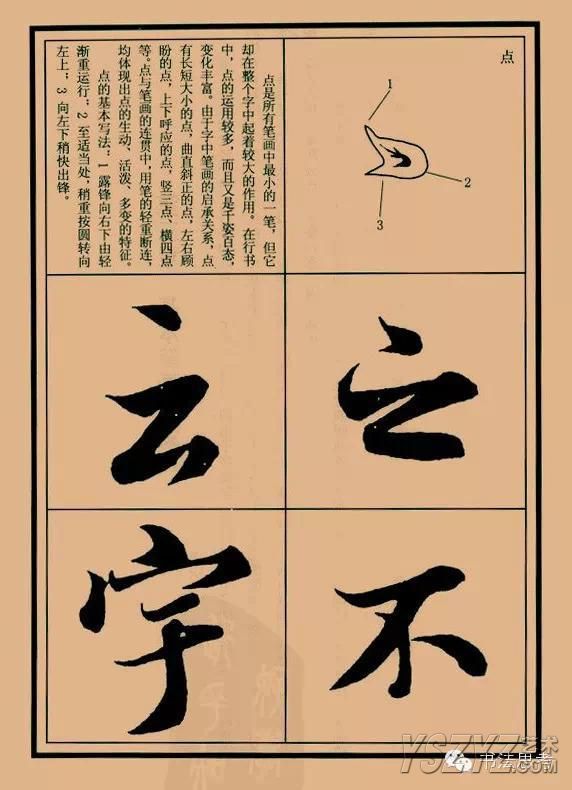 点
1
2
3
点是所有笔画中最小的一笔，但它
却在整个字中起着较大的作用。在行书
中，点的运用较多，而且又是千姿百态，
变化丰富。由于字中笔画的启承关系，点
有长短大小的点，曲直斜正的点，左右顾
盼的点，上下呼应的点，竖三点、横四点
等。点与笔画的连贯中，用笔的轻重断连，
均体现出点的生动、活泼、多变的特征。
点的基本写法：1 露锋向右下由轻
渐重运行；2 至适当处，稍重按圆转向
左上；3 向左下稍快出锋。
之
云
不
宇
YSZYZ艺术
书法思考